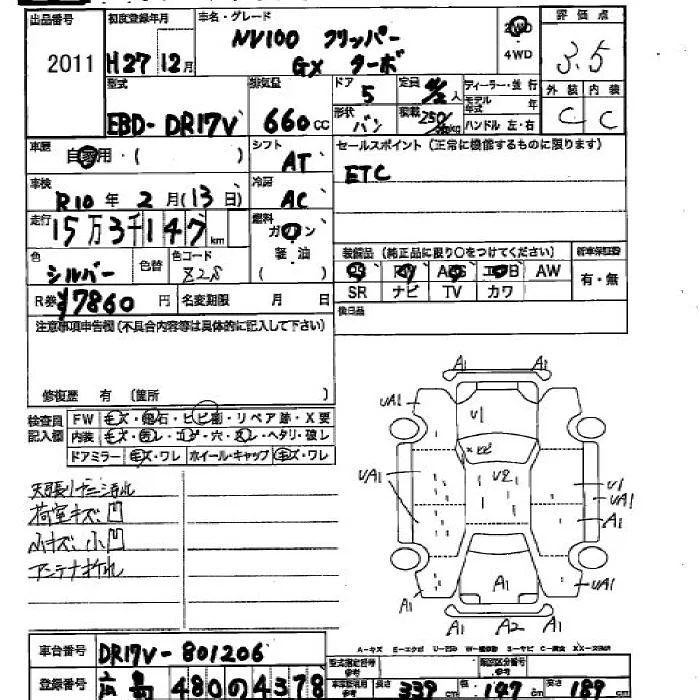 出品番号 2011
初度登録年月 H27 12月
車名・グレード NV100 クリッパー GX ターボ
2WD 4WD
評価点 3.5
外装 C 内装 C
型式 EBD-DR17V
排気量 660cc
ドア 5
定員 /2人
形状 バン
積載 250/ kg
ディーラー・並行
モデル年式 年
ハンドル 左・右
車歴 自家用・( )
シフト AT
セールスポイント(正常に機能するものに限ります)
ETC
車検 R10年 2月(13日)
冷房 AC
走行 15万3千147km
燃料 ガソリン 軽油 ( )
色 シルバー 色替
色コード Z2S
装備品(純正品に限り○をつけてください)
PS PW ABS エアB AW
SR ナビ TV カワ
新車保証書 有・無
R券 ¥7860円
名変期限 月 日
後日品
注意事項申告欄(不具合内容等は具体的に記入して下さい)
修復歴 有(箇所 )
検査員記入欄
FW キズ・飛石・ヒビ割・リペア跡・X要
内装 キズ・汚レ・コゲ・穴・スレ・ヘタリ・破レ
ドアミラー キズ・ワレ ホイール・キャップ キズ・ワレ
荷室キズ、凹
小キズ、小凹
アンテナ折れ
A1 A1
UA1 UA1
U1
×ヒビ
UA1 U2 U1
UA1
A1
A1 A1 UA1
A1 A2 A1
A-キズ E-エクボ
車台番号 DR17V-801206
型式指定番号 参考
類別区分番号 参考
登録番号 広島 480の4378
長さ 339cm 幅 147cm 高さ 189cm